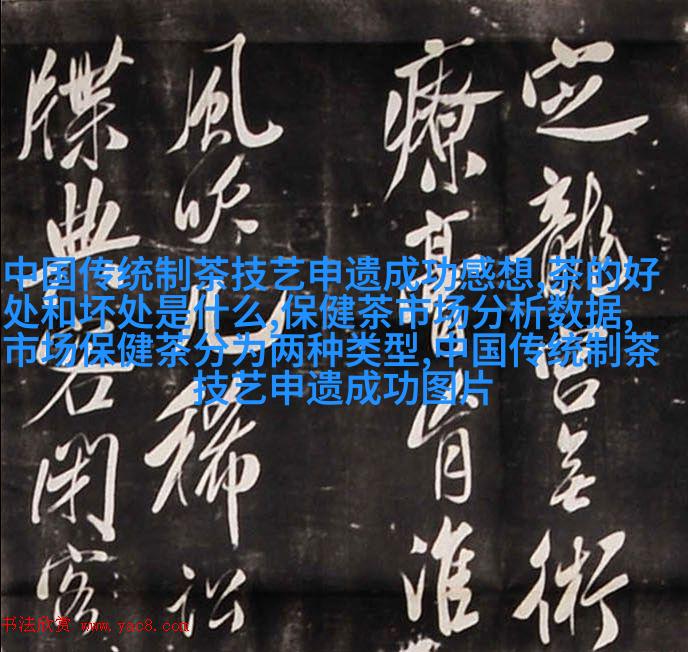 龍宮無術
療膏肓淮
風吹稀訟
牒典客閑
中国传统制茶技艺申遗成功感想,茶的好
处和坏处是什么,保健茶市场分析数据,
市场保健茶分为两种类型,中国传统制茶
技艺申遗成功图片
书法欣赏 www.yac8.com